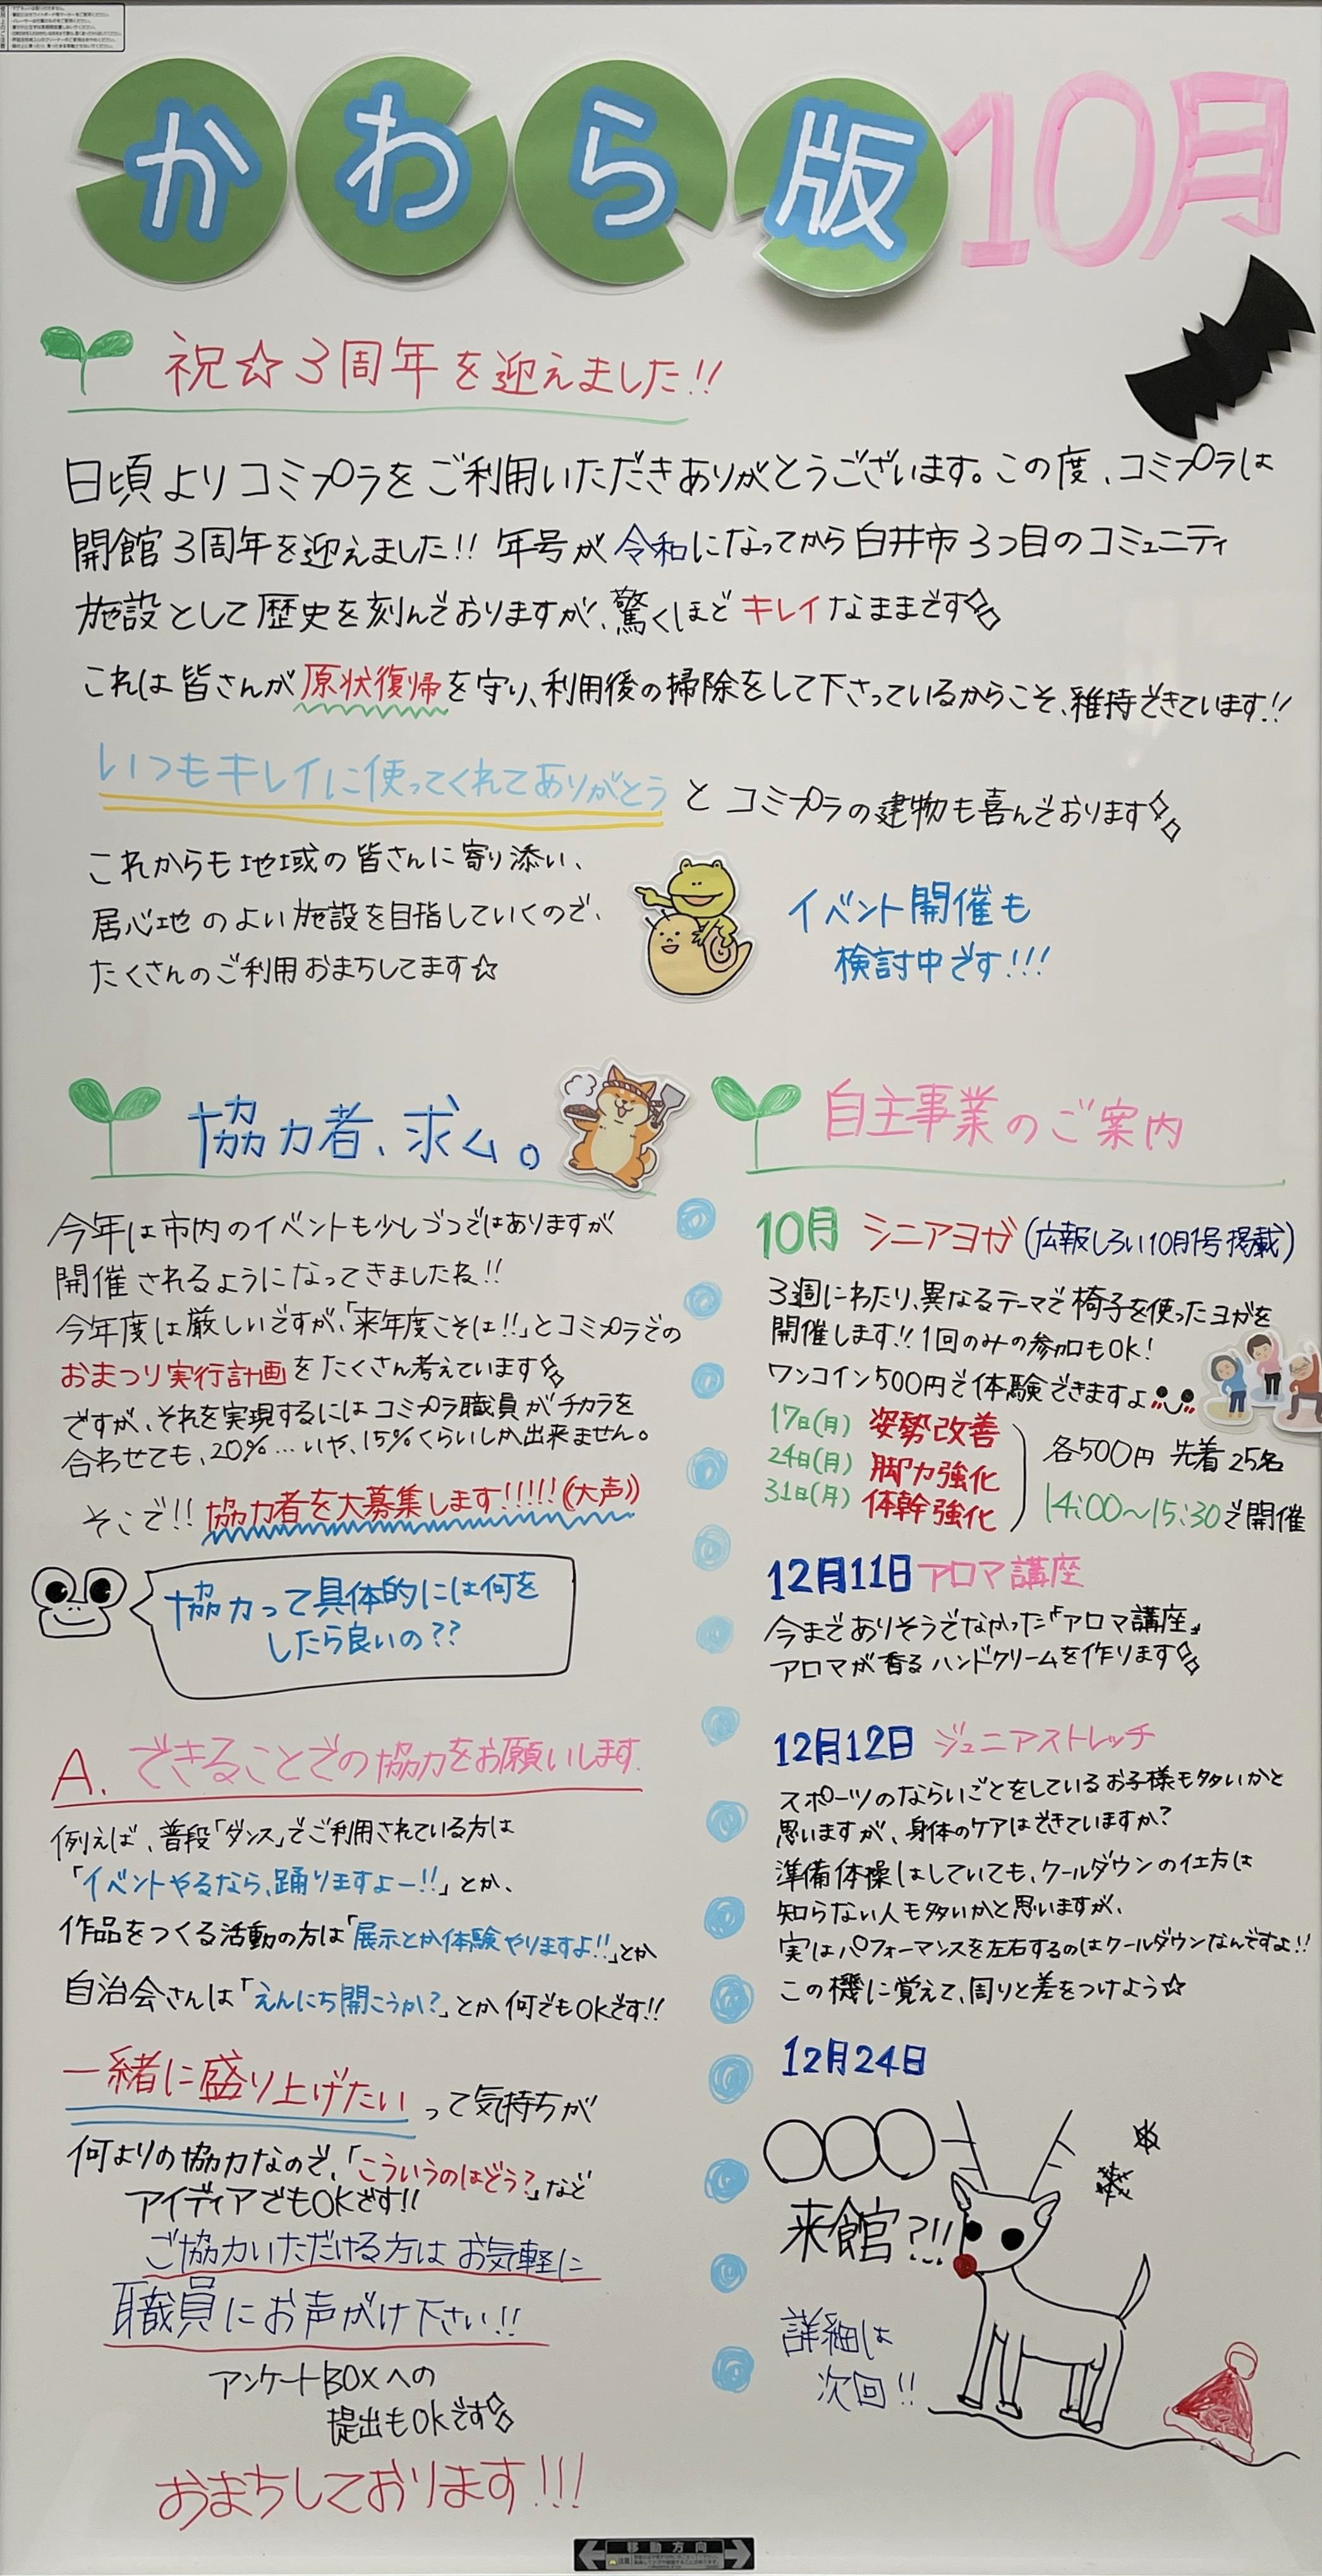 かわら版 10月
祝☆3周年を迎えました!!
日頃よりコミプラをご利用いただきありがとうございます。この度、コミプラは
開館3周年を迎えました!! 年号が令和になってから白井市3つ目のコミュニティ
施設として歴史を刻んでおりますが、驚くほどキレイなままです
これは皆さんが原状復帰を守り、利用後の掃除をして下さっているからこそ、維持できています!!
いつもキレイに使ってくれてありがとう とコミプラの建物も喜んでおります
これからも地域の皆さんに寄り添い、
居心地のよい施設を目指していくので、
たくさんのご利用おまちしてます☆
イベント開催も
検討中です!!!
協力者、求ム。
今年は市内のイベントも少しづつではありますが
開催されるようになってきましたね!!
今年度は厳しいですが、「来年度こそは!!」とコミプラでの
おまつり実行計画をたくさん考えています
ですが、それを実現するにはコミプラ職員がチカラを
合わせても、20%…いや、15%くらいしか出来ません。
そこで!! 協力者を大募集します!!!!!(大声)
協力って具体的には何を
したら良いの??
A. できることでの協力をお願いします.
例えば、普段「ダンス」でご利用されている方は
「イベントやるなら、踊りますよー!!」とか、
作品をつくる活動の方は「展示とか体験やりますよ!!」とか
自治会さんは「えんにち開こうか?」とか何でもOKです!!
一緒に盛り上げたい って気持ちが
何よりの協力なので、「こういうのはどう?」など
アイディアでもOKです!!
ご協力いただける方はお気軽に
職員にお声がけ下さい!!
アンケートBOXへの
提出もOKです
おまちしております!!!
自主事業のご案内
10月 シニアヨガ(広報しろい10月1号掲載)
3週にわたり、異なるテーマで椅子を使ったヨガを
開催します!! 1回のみの参加もOK!
ワンコイン500円で体験できますよ
17日(月) 姿勢改善
24日(月) 脚力強化
31日(月) 体幹強化
各500円 先着25名
14:00～15:30で開催
12月11日 アロマ講座
今までありそうでなかった「アロマ講座」
アロマが香るハンドクリームを作ります
12月12日 ジュニアストレッチ
スポーツのならいごとをしているお子様も多いかと
思いますが、身体のケアはできていますか?
準備体操はしていても、クールダウンの仕方は
知らない人も多いかと思いますが、
実はパフォーマンスを左右するのはクールダウンなんですよ!!
この機に覚えて、周りと差をつけよう☆
12月24日
○○○
来館?!!...
詳細は
次回!!
移動方向